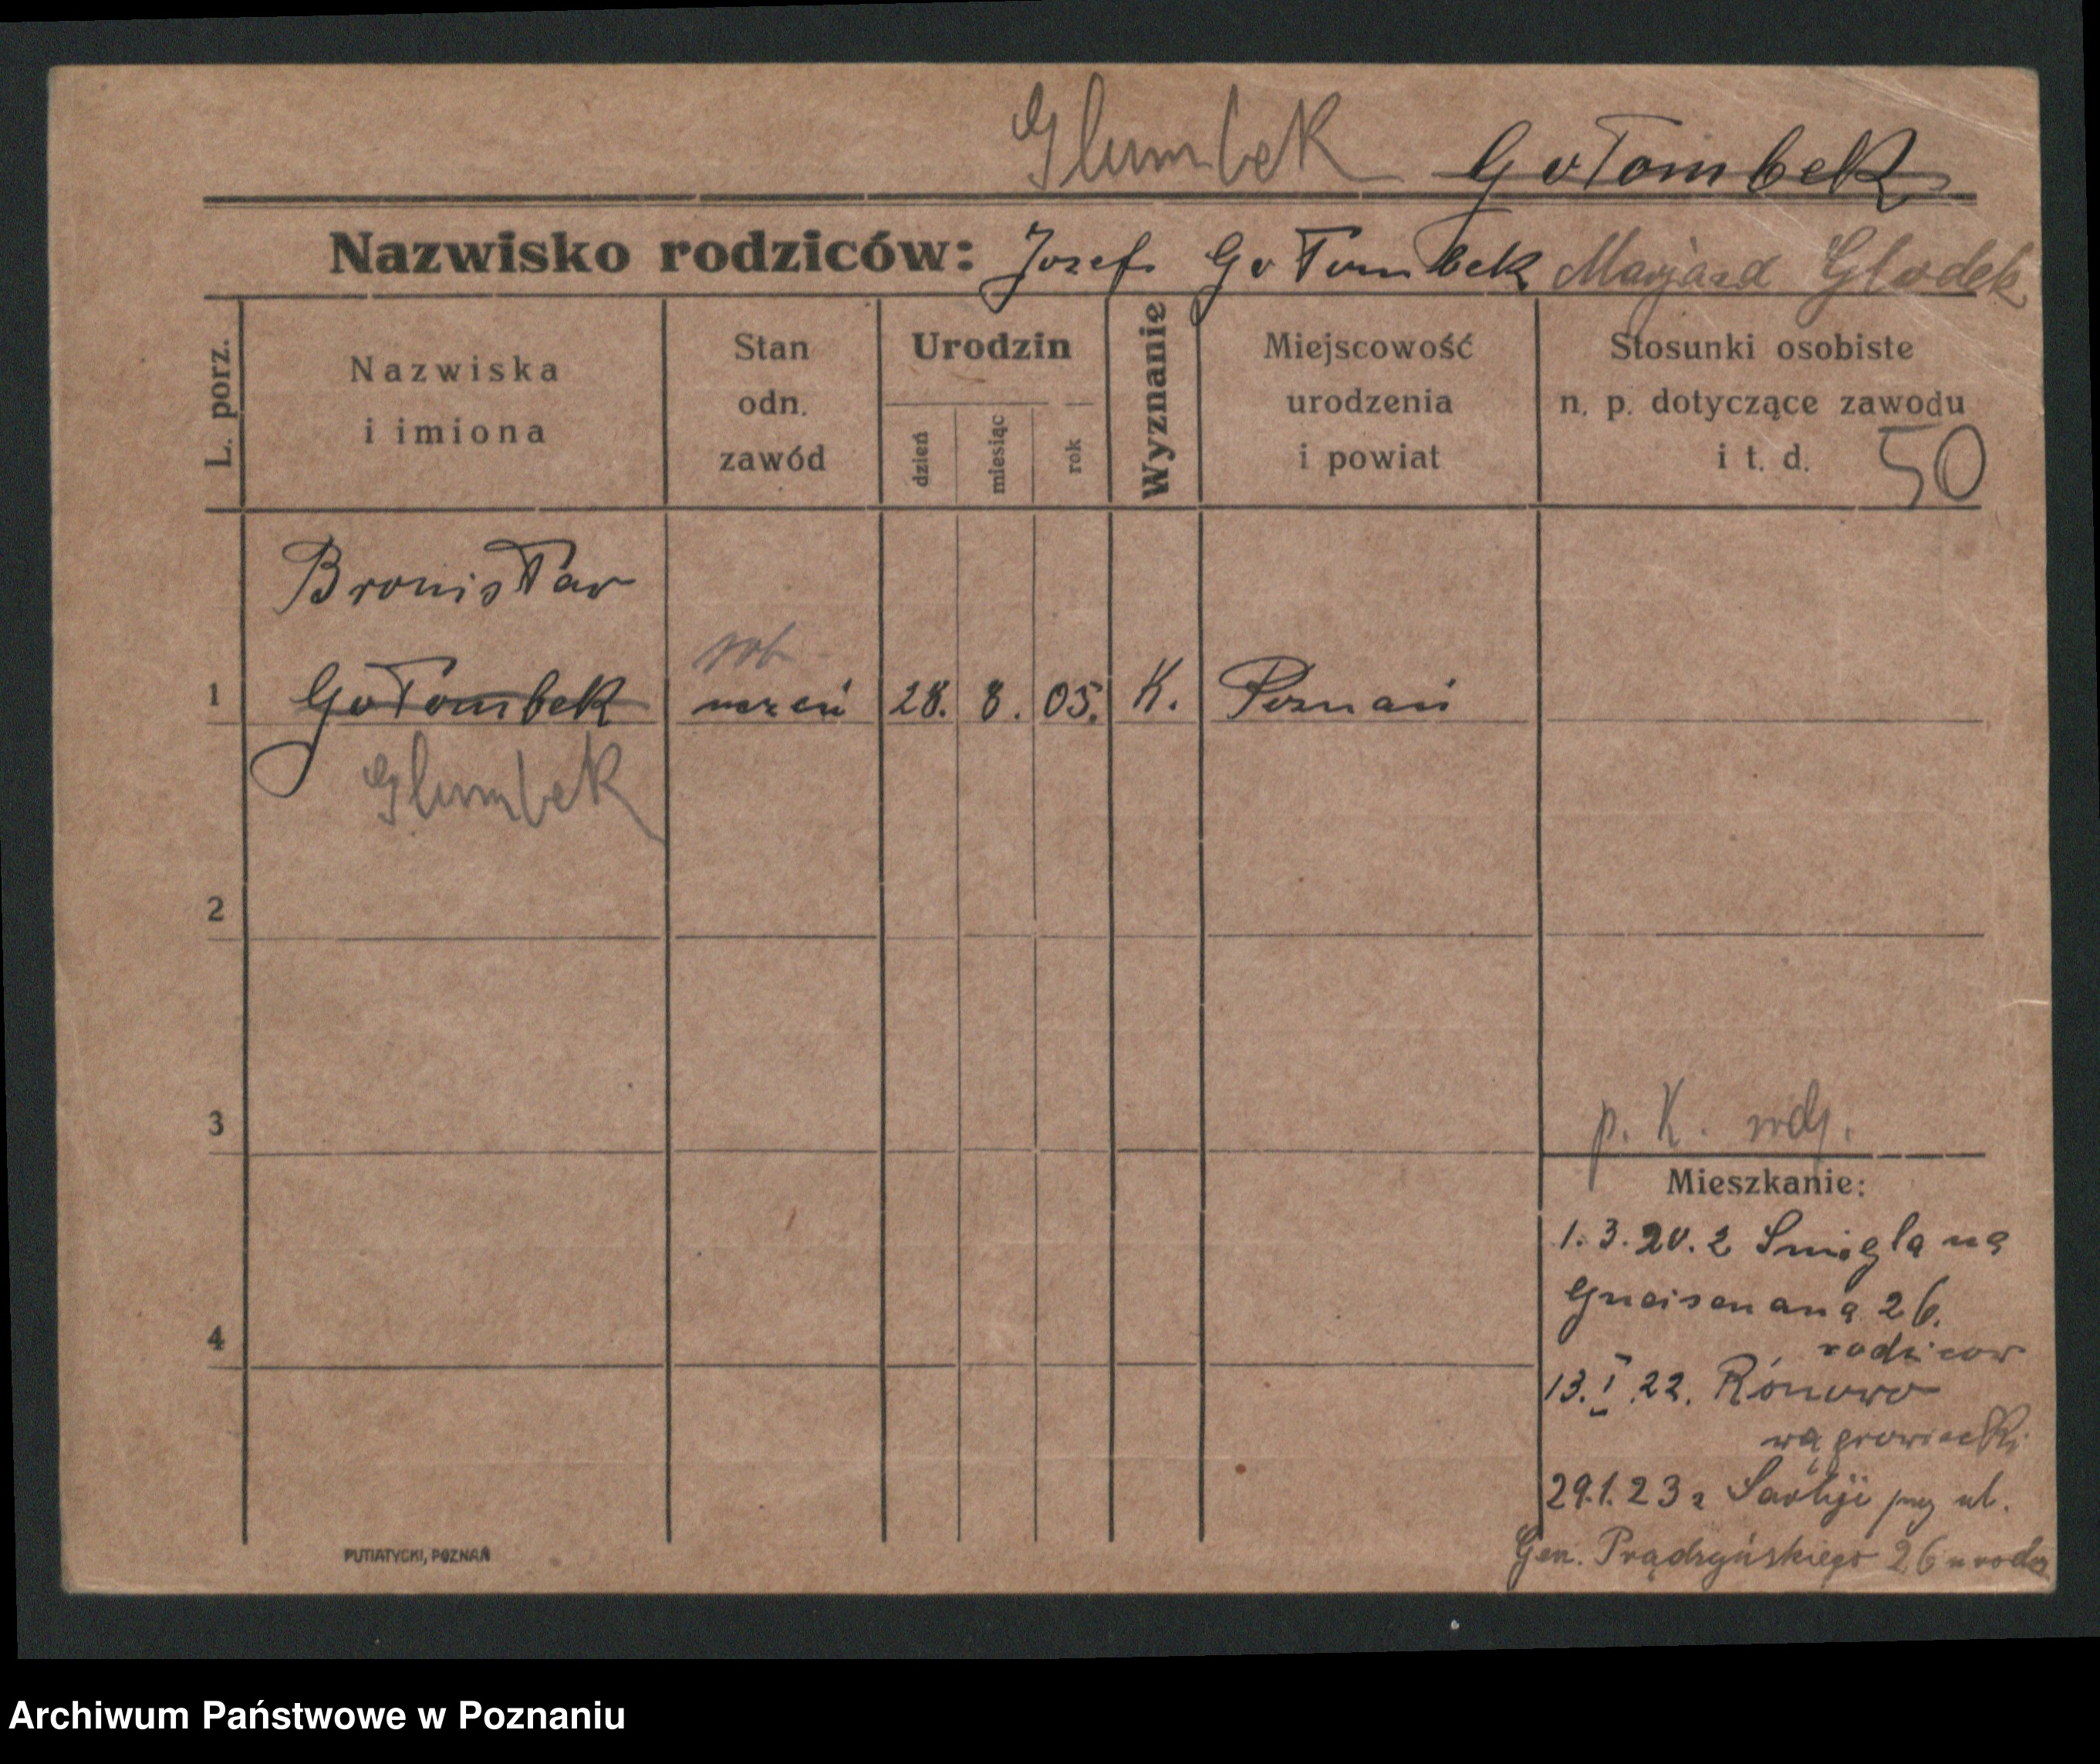 Glumbek Gołombek
Nazwisko rodziców: Jozef Gołombek Maryja zd Glodek
L. porz.
Nazwiska
i imiona
Stan
odn.
zawód
Urodzin
dzień
miesiąc
rok
Wyznanie
Miejscowość
urodzenia
i powiat
Stosunki osobiste
n. p. dotyczące zawodu
i t. d. 50
Bronisław
rob
1 Gołombek uczeń 28. 8. 05. K. Poznań
Glumbek
2
3
p. K.
Mieszkanie:
1. 3. 20. z Smigla na
Gneisenaua 26.
rodzicow
4
13. I 22. Rónowo
wągrowiecki
29.1.23 z przy ul.
Gen. Prądzyńskiego 26 u rodz
PUTIATYCKI, POZNAŃ
Archiwum Państwowe w Poznaniu